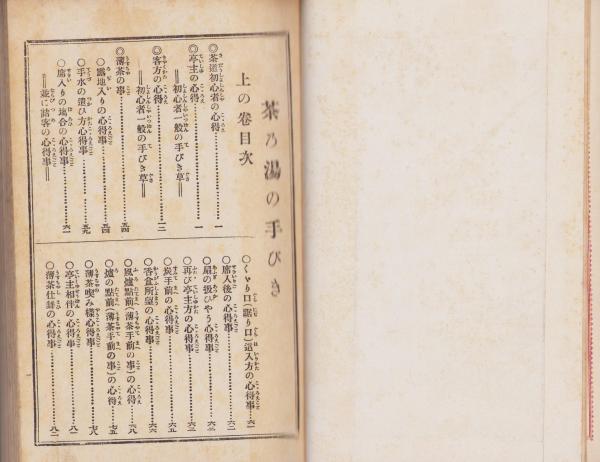 茶乃湯の手びき
上の卷目次
◎茶道初心者の心得…………一
◎亭主の心得…………一
＝初心者一般の手びき草＝
◎客方の心得…………一二
＝初心者一般の手びき草＝
◎薄茶の事…………五四
○露地入りの心得事…………五四
○手水の遣ひ方心得事…………五九
○席入りの場合の心得事…………六一
＝並に詰客の心得事＝
○くゞり口(躙り口)這入方の心得事…六一
○席入後の心得事…………六二
○扇の扱ひやう心得事…………六三
○再び亭主方の心得事…………六三
○炭手前の心得事…………六五
○香合所望の心得事…………六六
○風爐點前(薄茶手前の事)の心得…六八
○爐の點前(薄茶手前の事)の心得…七五
○薄茶喫み樣心得事…………七八
○亭主相伴の心得事…………八一
○薄茶仕舞の心得事…………八二